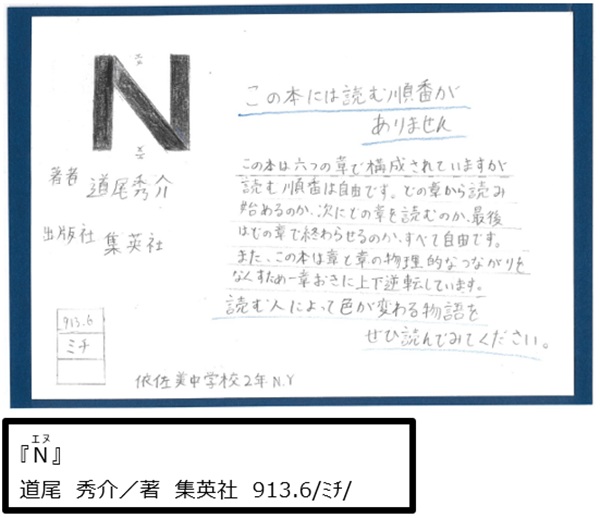 エヌ
N
エヌ
この本には読む順番が
ありません
著者 道尾秀介
出版社 集英社
この本は六つの章で構成されていますが
読む順番は自由です。どの章から読み
始めるのか、次にどの章を読むのか、最後
はどの章で終わらせるのか、すべて自由です。
また、この本は章と章の物理的なつながりを
なくすため一章おきに上下逆転しています。
読む人によって色が変わる物語を
ぜひ読んでみてください。
913.6
ミチ
依佐美中学校2年 N.Y
エヌ
『N』
道尾 秀介／著 集英社 913.6/ﾐﾁ/